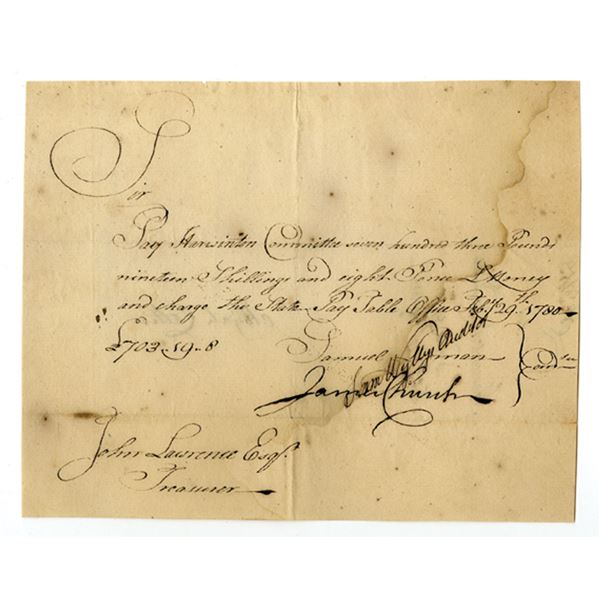 Sir
Pay Harwinton Committee seven hundred three Pounds
nineteen Shillings and eight Pence L Money
and charge the State Pay Table Office Feby 29th 1780
£703-19-8
Samuel Lyman
James Church
Sam Wyllys Auditor
Comtee
John Lawrence Esqr
Treasurer